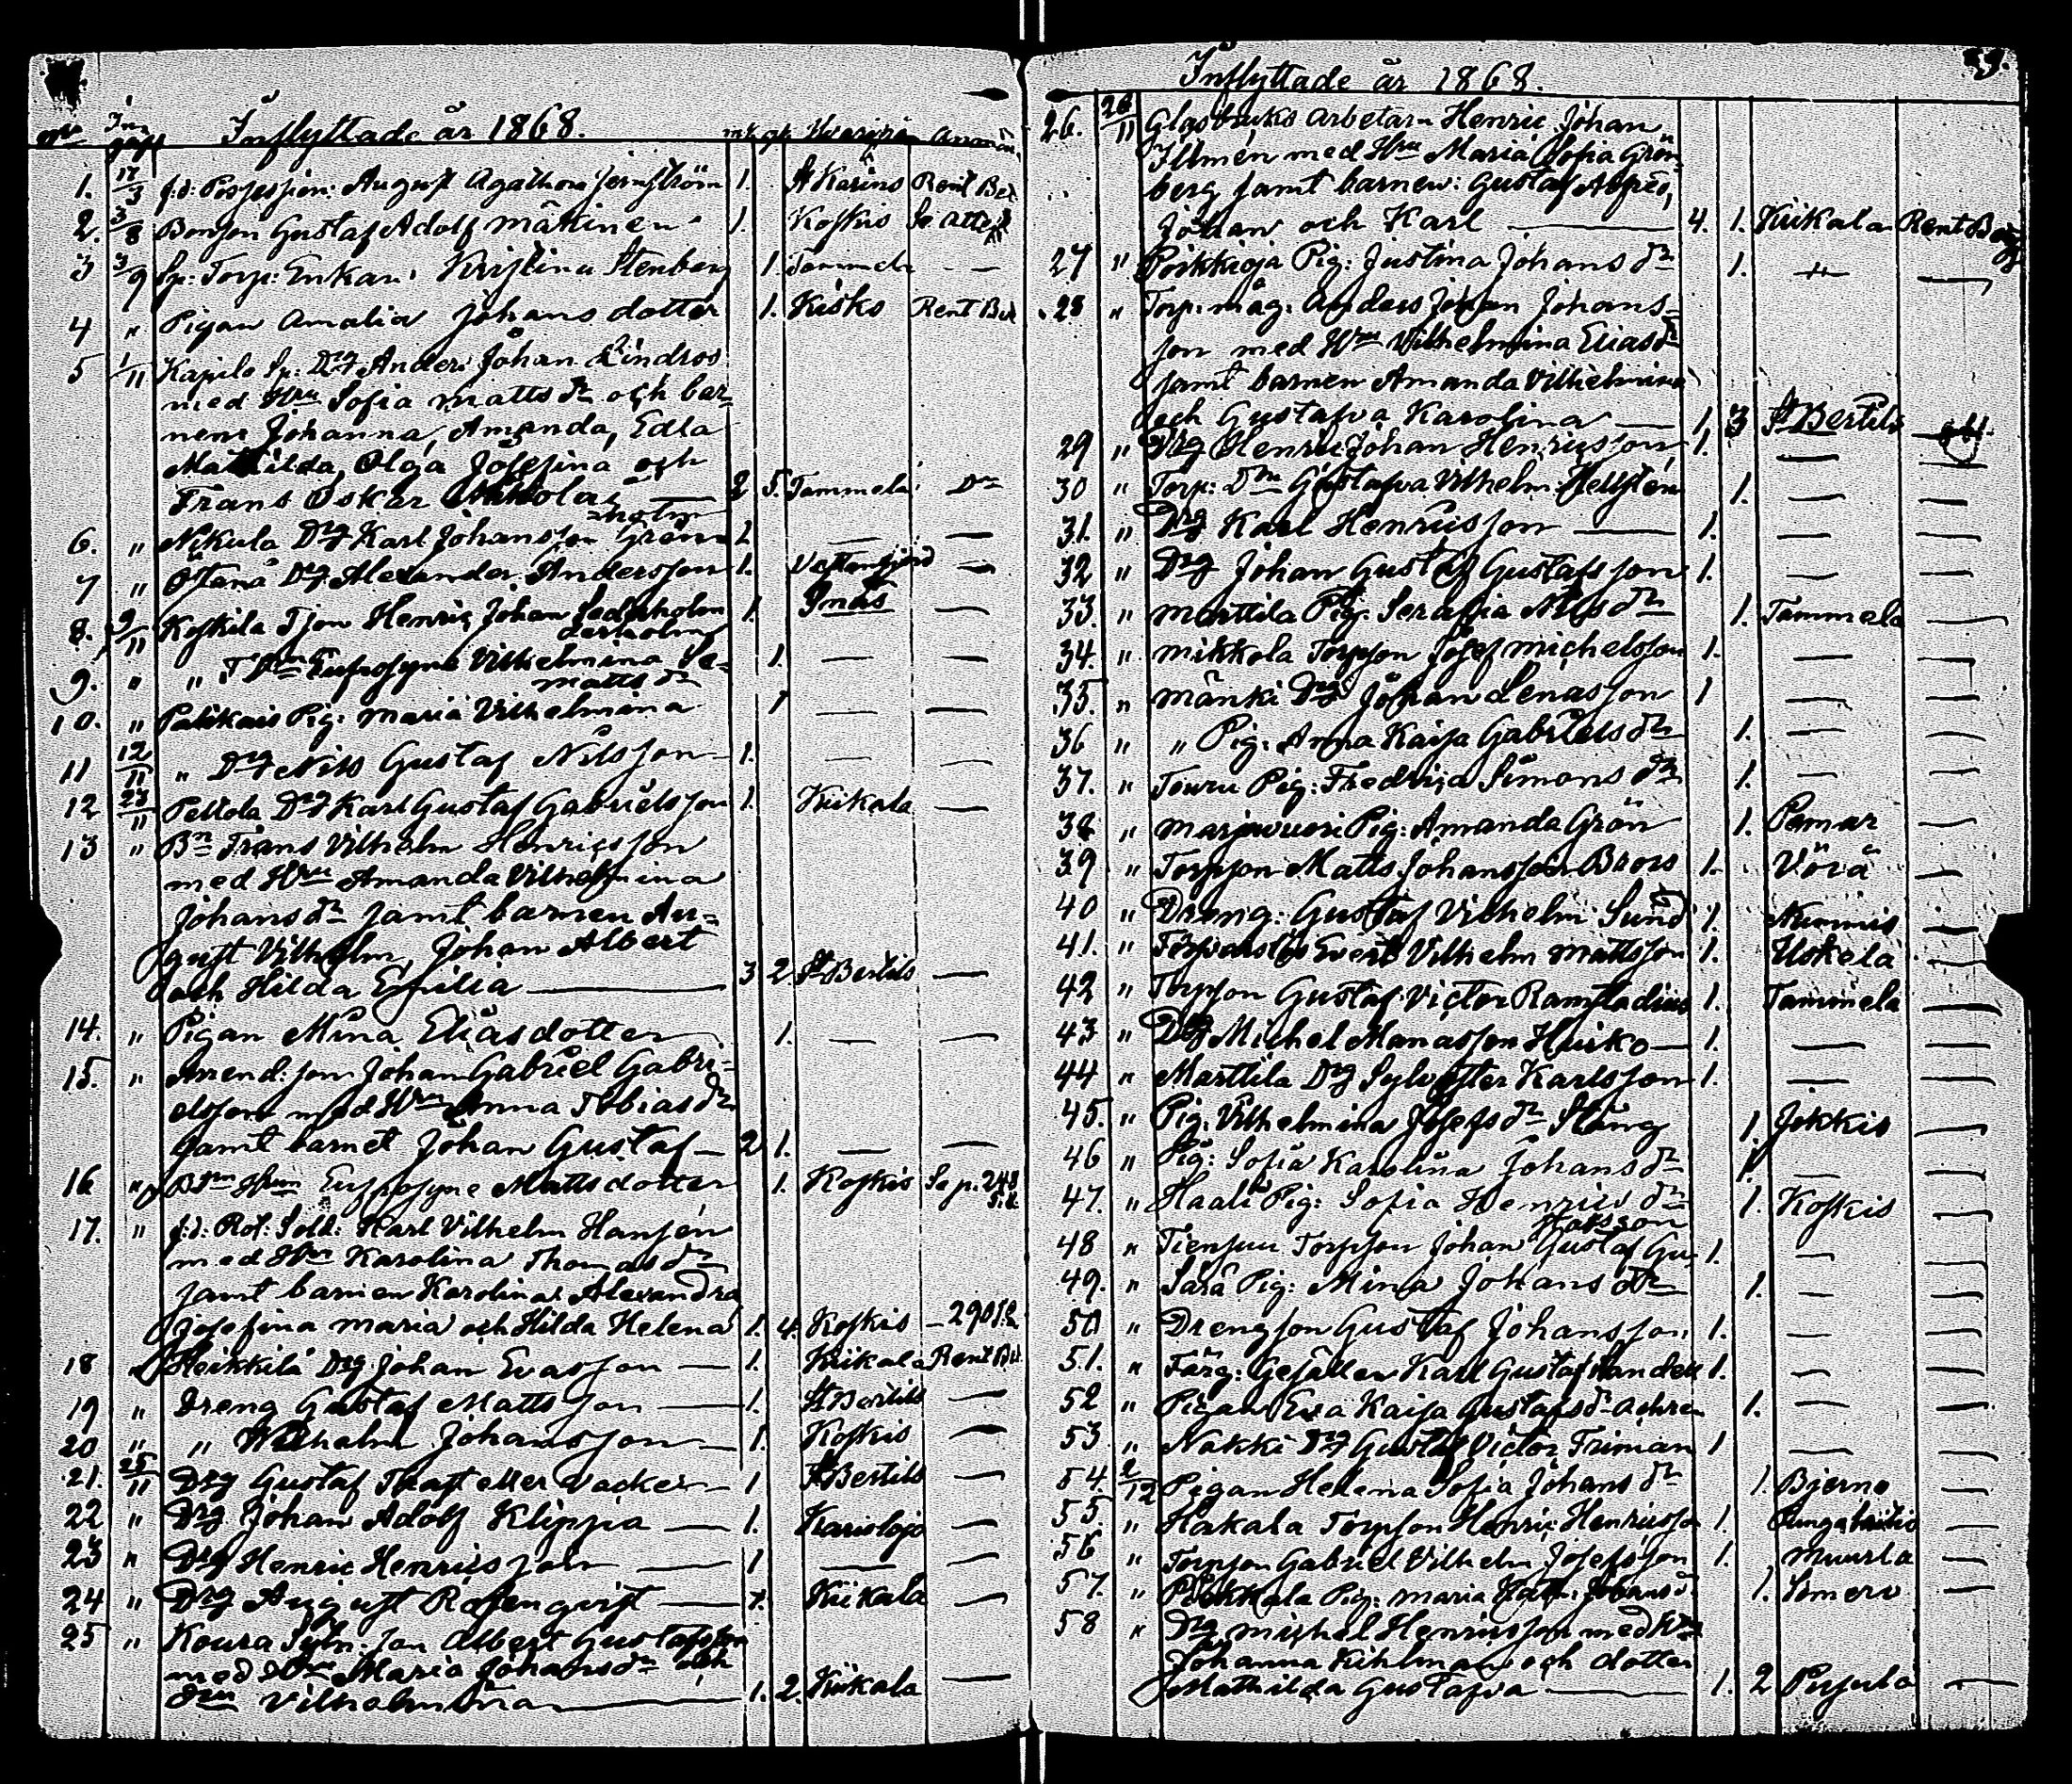 Inflyttade år 1868.
1. 17/3 f.d. Possession: August Agathon Jernström 1. St Karins Rent Bet
2. 3/8 Bonson Gustaf Adolf Mattinen 1. Koskis
3 3/9 Sp: Torp: Enkan Kristina Stenberg 1. Tammela — —
4 " Pigan Amalia Johans dotter 1. Kisko Rent Bet
5 1/11 Kapilo Sp: Drg Anders Johan Lindros
med Hru Sofia Matts dr och bar-
nen: Johanna, Amanda, Edla
Mathilda, Olga Josefina och
Frans Oskar — 2 5. Tammela Do
holm
6. " Nikula Drg Karl Johansson Grön= 1 — —
7 " Drg Alexander Andersson 1. Vestanfjerd —
8. 9/11 Koskila Tjon Henric Johan Sederholm 1. —
derholm
9. " " Eufrosyne Vilhelmina Se= 1. — —
Matts dr
10. " Palikais Pig: Maria Vilhelmina 1 — —
11 12/11 " Drg Nils Gustaf Nilsson 1. — —
12 23/11 Peltola Drg Karl Gustaf Gabrielsson 1. Kiikala —
13 " Bn Frans Vilhelm Henricsson
med Hru Amanda Vilhelmina
Johans dr samt barnen Au=
gust Vilhelm, Johan Albert
och Hilda Emilia — 3 2. St Bertils —
14. " Pigan Mina Eliasdotter 1. — —
15. " Arrend: son Johan Gabriel Gabri=
elsson med Hru Anna Tobias dr
samt barnet Johan Gustaf — 2 1. — —
16 " Eufrosyne Matts dotter 1. Koskis Se p. 248
17. " f.d. Rot: Sold: Karl Vilhelm Hansén
med Hru Karolina Thomas dr
samt barnen Karolina Alexandra
Josefina Maria och Hilda Helena 1. 4. Koskis — 290
18 " Heikkilä Drg Johan Evasson — 1. Kiikala Rent Bet
19 " Dreng Gustaf Mattsson — 1. St Bertils —
20 " " Wilhelm Johansson — 1. Koskis —
21. 25/11 Drg Gustaf Thaft eller Vacker — 1 St Bertils —
22 " Drg Johan Adolf Klippia — 1. Karislojo —
23 " Drg Henric Henricsson — 1 — —
24 " Drg August Rosenqvist — 1. Kiikala —
25 " Koura Sytn: son Albert Gustafsson
med Hru Maria Johans dr och
dru Vilhelmina — 1. 2. Kiikala —
Inflyttade år 1868.
26. 26/11 Glasbruks Arbetarn Henric Johan
Illmén med Hru Maria Sofia Grön=
berg samt barnen: Gustaf Alfred,
Johan och Karl — 4. 1. Kiikala Rent Betyg
27 " Poikkioja Pig: Justina Johans dr 1. " —
28 " Torp: måg: Anders Johan Johans=
son med Hru Vilhelmina Elias dr
samt barnen Amanda Vilhelmina
och Gustafva Karolina — 1. 3 St Bertils
29 " Drg Henric Johan Henricsson 1. — —
30 " Torp: Dru Gustafva Vilhelm: Hellsten 1. — —
31. " Drg Karl Henricsson — 1. — —
32 " Drg Johan Gustaf Gustafsson 1. — —
33. " Marttila Pig: Serafia Nils dr 1. Tammela —
34. " Mikkola Torpson Josef Michelsson 1. — —
35. " Mänki Drg Johan Lenasson 1 — —
36 " " Pig: Anna Kaisa Gabriels dr 1. — —
37. " Touru Pig: Fredrika Simons dr 1. — —
38 " Marjavuori Pig: Amanda Grön 1. Pemar —
39 " Torpson Matts Johansson Brors 1. Vörå —
40 " Dreng: Gustaf Vilhelm Sund 1. Nummis —
41. " Evert Vilhelm Mattsson 1. Uskela —
42 " Torpson Gustaf Victor Ramstadius 1. Tammela —
43 " Drg Michel Manasson Huirko — 1. — —
44 " Marttila Drg Sylvester Karlsson 1. — —
45. " Pig: Vilhelmina Josefs dr Stäng 1. Jokkis —
46 " Pig: Sofia Karolina Johans dr 1. — —
47. " Haali Pig: Sofia Henrics dr 1. Koskis —
stafsson
48 " Tiensuu Torpson Johan Gustaf Gu= 1. — —
49. " Sara Pig: Mina Johans dr 1. — —
50 " Drengson Gustaf Johansson 1. — —
51. " Färg: Gesällen Karl Gustaf Sandell 1. — —
52 " Pigan Eva Kaisa Gustafs dr 1. — —
53 " Nokki Drg Gustaf Victor Friman 1 — —
54. 2/12 Pigan Helena Sofia Johans dr 1. Bjerno —
55. " Hakala Torpson Henric Henricsson 1. —
56 " Torpson Gabriel Vilhelm Josefsson 1. Muurla —
57. " Pig: Maria Kath: Johans dr 1. Somero —
58 " Drg Michel Henricsson med Hru
Johanna Kihlman och dotter
Mathilda Gustafva — 1. 2 Pusula —